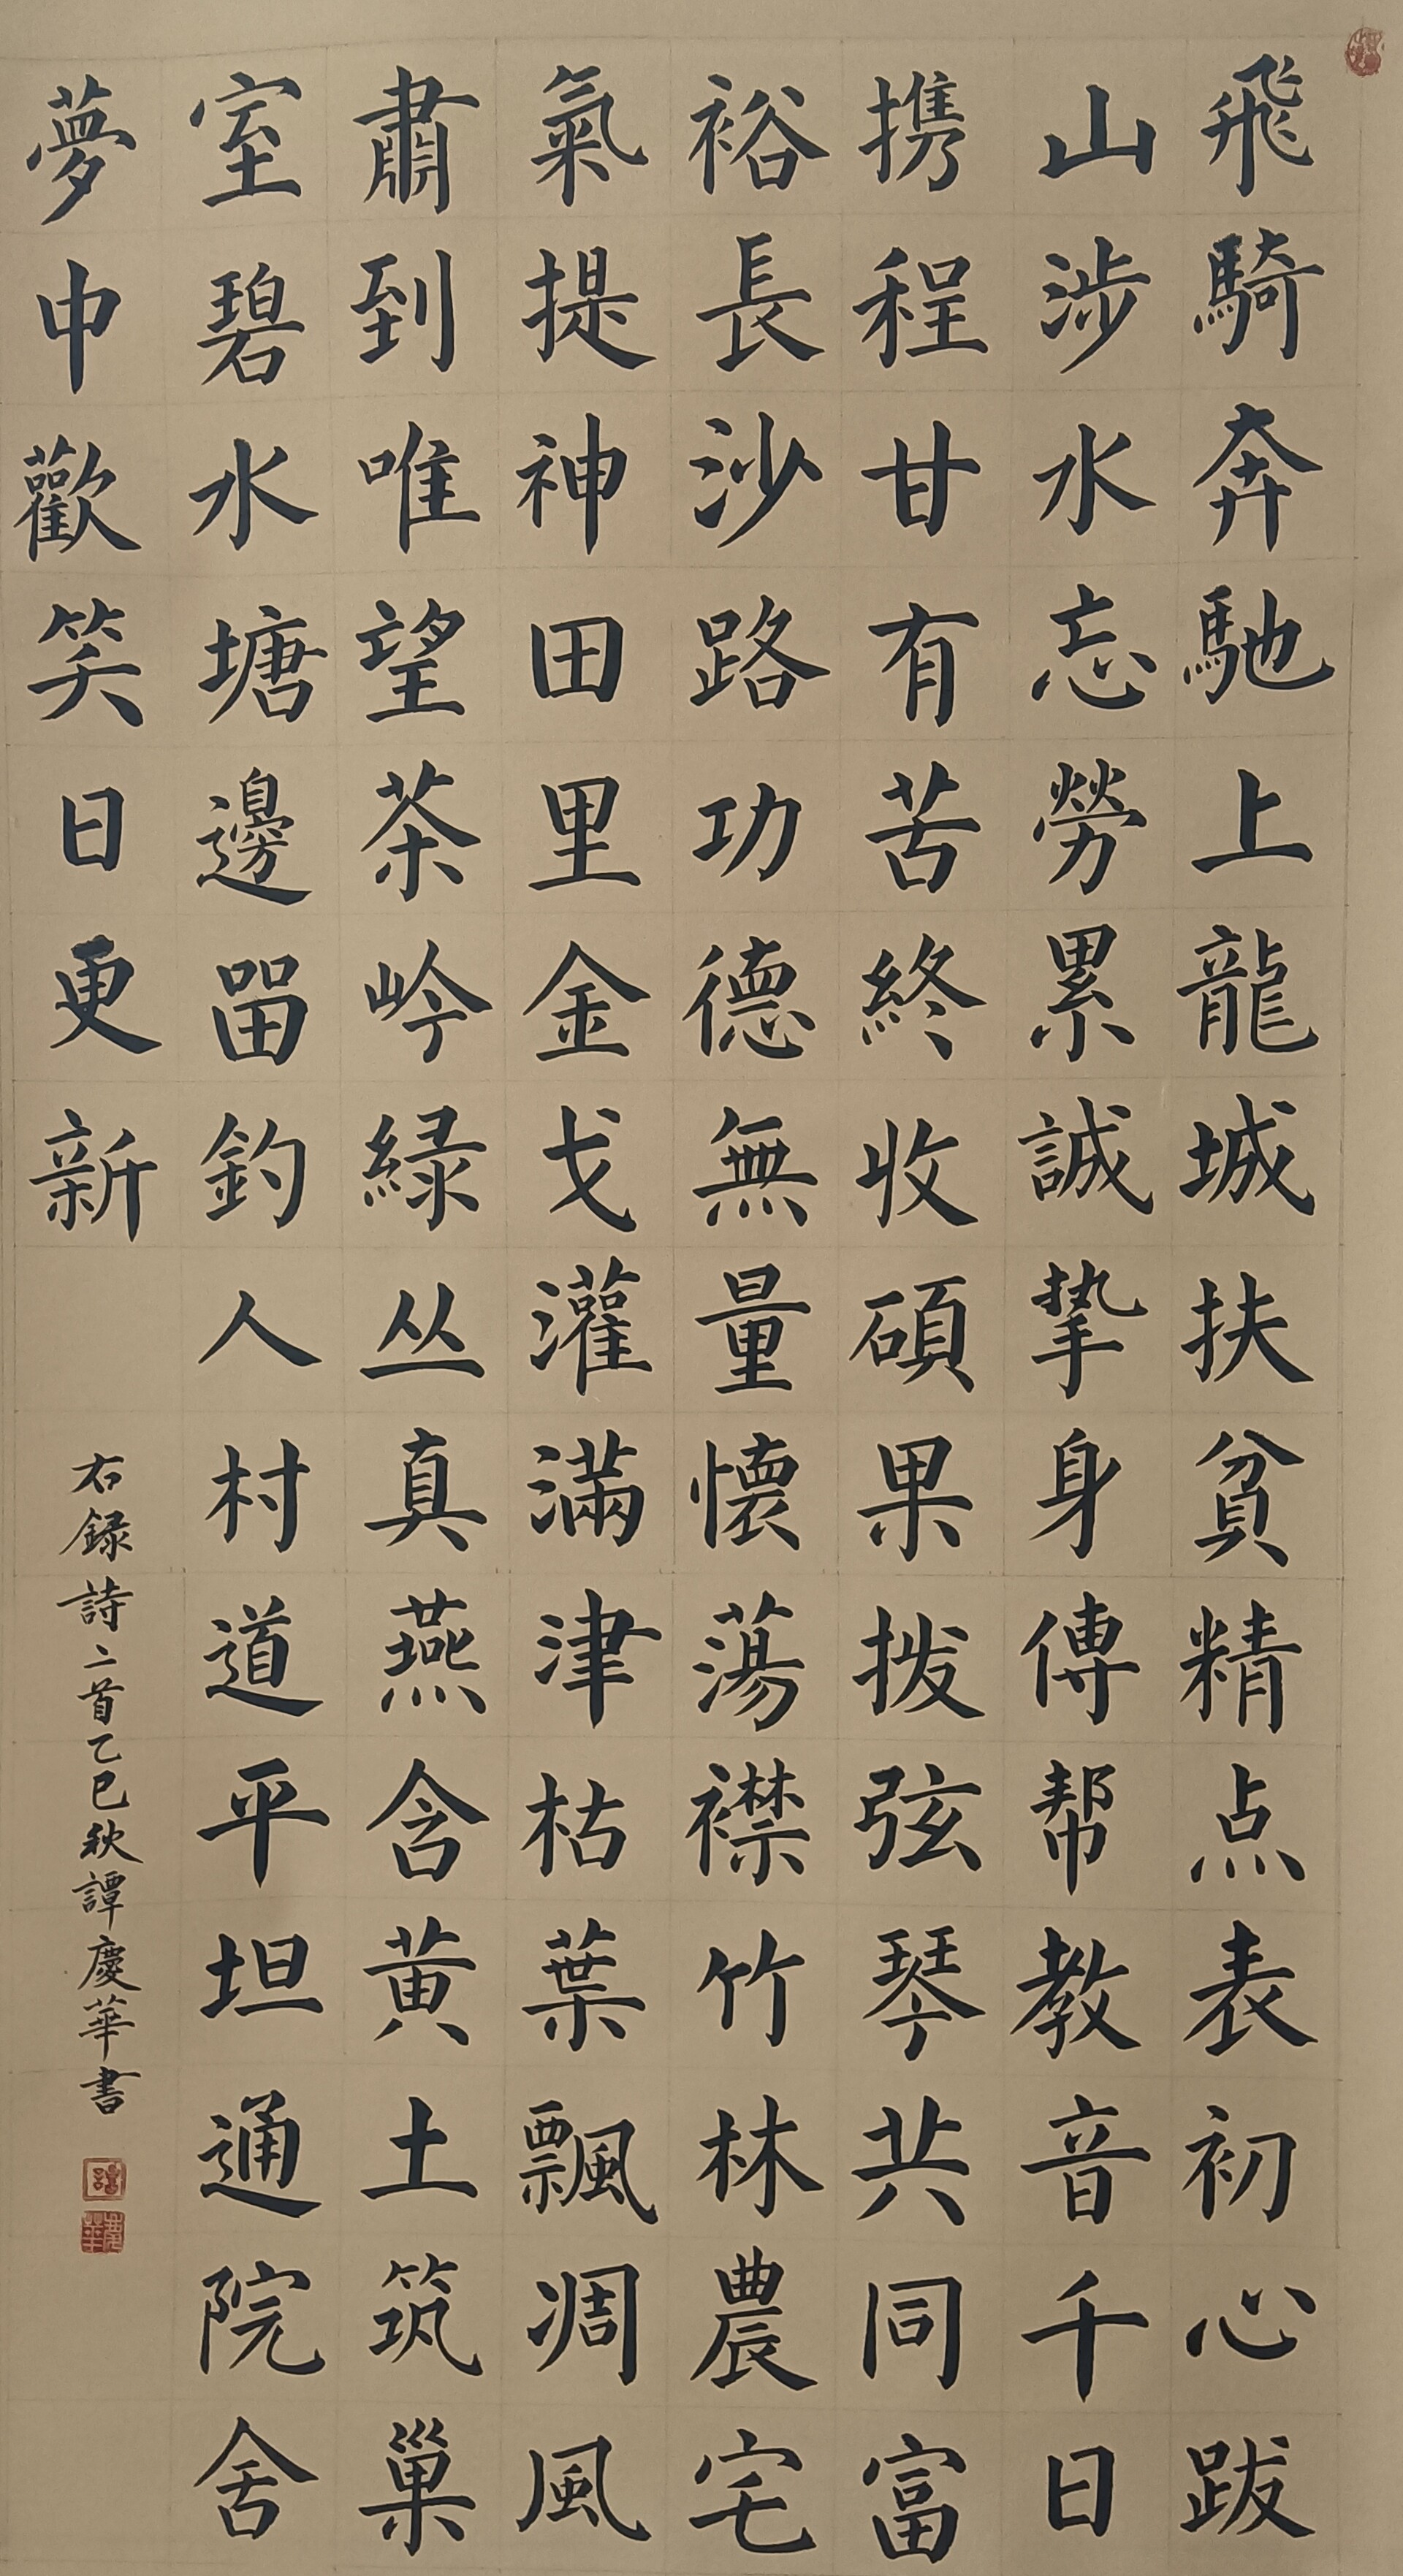 飛騎奔馳上龍城扶貧精点表初心跋
山涉水忘勞累誠挚身傳帮教音千日
携程甘有苦終收碩果拨弦琴共同富
裕長沙路功德無量懷蕩襟竹林農宅
氣提神田里金戈灌滿津枯葉飄凋風
肅到唯望茶岭緑丛真燕含黄土筑巢
室碧水塘邊畱釣人村道平坦通院舍
夢中歡笑日更新
右録詩二首乙巳秋譚慶華書